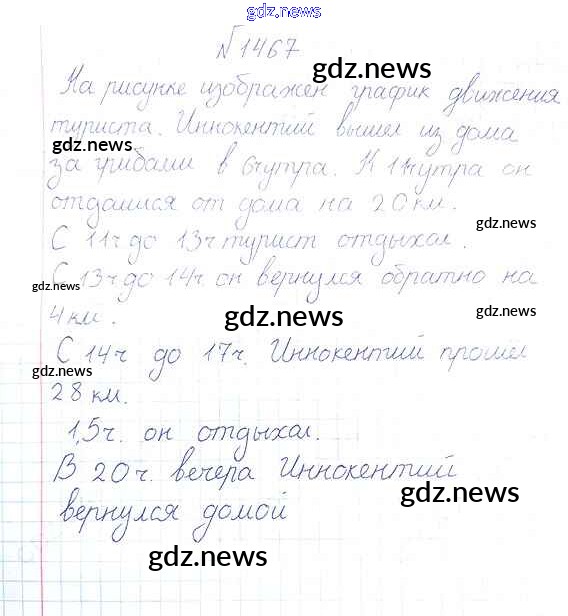 gdz.ru
№1467
gdz.ru
На рисунке изображен график движения
туриста. Иннокентий вышел из дома
gdz.ru
за грибами в 6ч утра. К 11ч утра он
отдалился от дома на 20 км.
gdz.ru
С 11ч до 13ч турист отдыхал.
С 13ч до 14ч. он вернулся обратно на
gdz.ru
4 км.
gdz.ru
gdz.ru
С 14ч до 17ч. Иннокентий прошел
gdz.ru
28 км.
1,5ч. он отдыхал.
В 20ч. вечера Иннокентий
gdz.ru
вернулся домой
gdz.ru